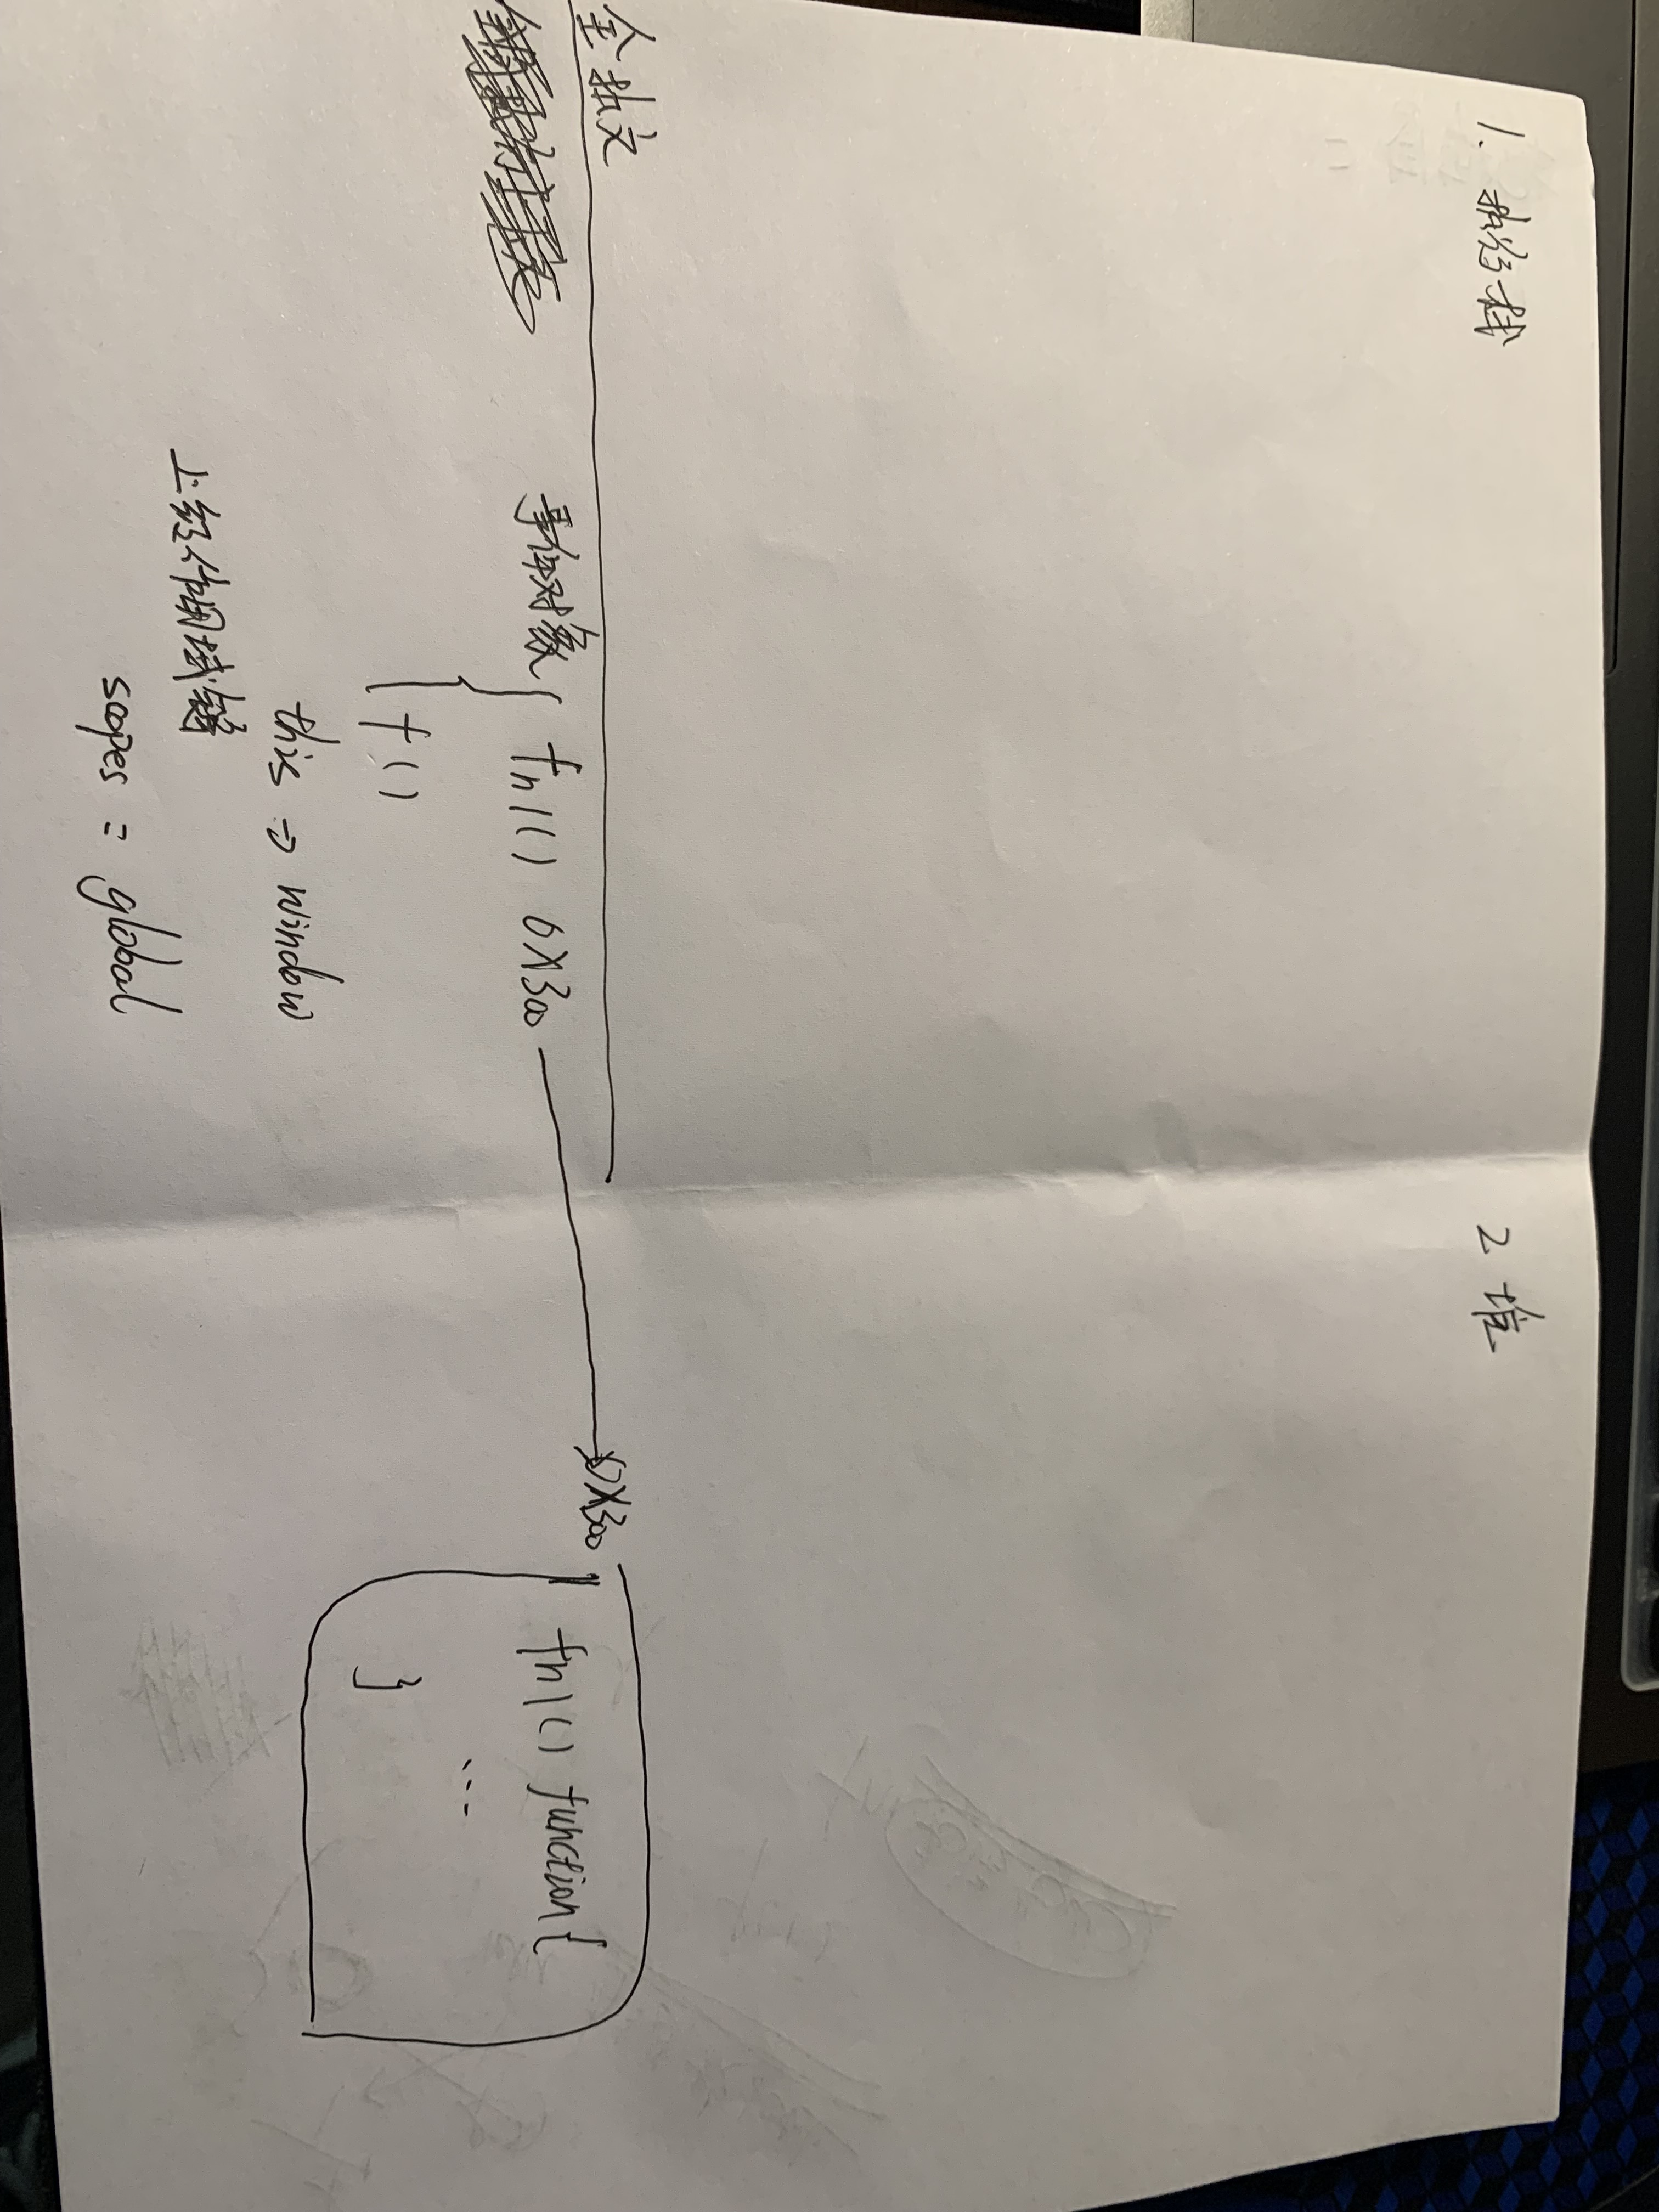 1. 执行栈
2 堆
全执文
事件对象{ fn1() 0X300
} f()
this => window
上级作用域链
scopes = global
0X300
fn1() function{
...
}